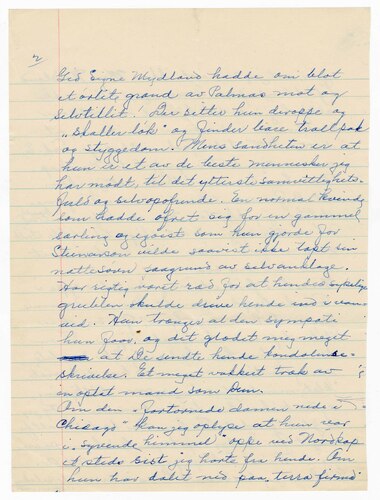 2
Gid Signe Mydland hadde om blot
et orlite grand av Palmas mot og
selvtillit! Der sitter hun deroppe og
"skaller løk" og finder bare trollpak
og styggedom. Mens sandheten er at
hun er et av de beste mennesker jeg
har mødt, til det ytterste samvittighets-
fuld og selvopofrende. En normal kvinde
som hadde ofret sig for en gammel
og egoist som hun gjorde for
Steinarson vilde saavist ikke tapt sin
nattesøvn paagrund av selvanklage.
Har rigtig været ræd for at hendes
grublen skulde drive hende ind i
ved. Hun trænger al den sympati
hun faar, og det glædet mig meget
at De sendte hende kondolense-
skrivelse. Et meget vakkert træk av
en optat mand som Dem.
Om den "fortornede damen nede i
Chicago" kan jeg oplyse at hun var
i "syvende himmel" oppe ved Nordkap
et steds sist jeg hørte fra hende. Om
hun har dalet ned paa "terra firma